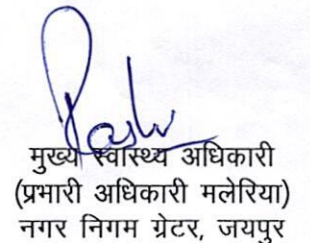 मुख्य स्वास्थ्य अधिकारी
(प्रभारी अधिकारी मलेरिया)
नगर निगम ग्रेटर, जयपुर